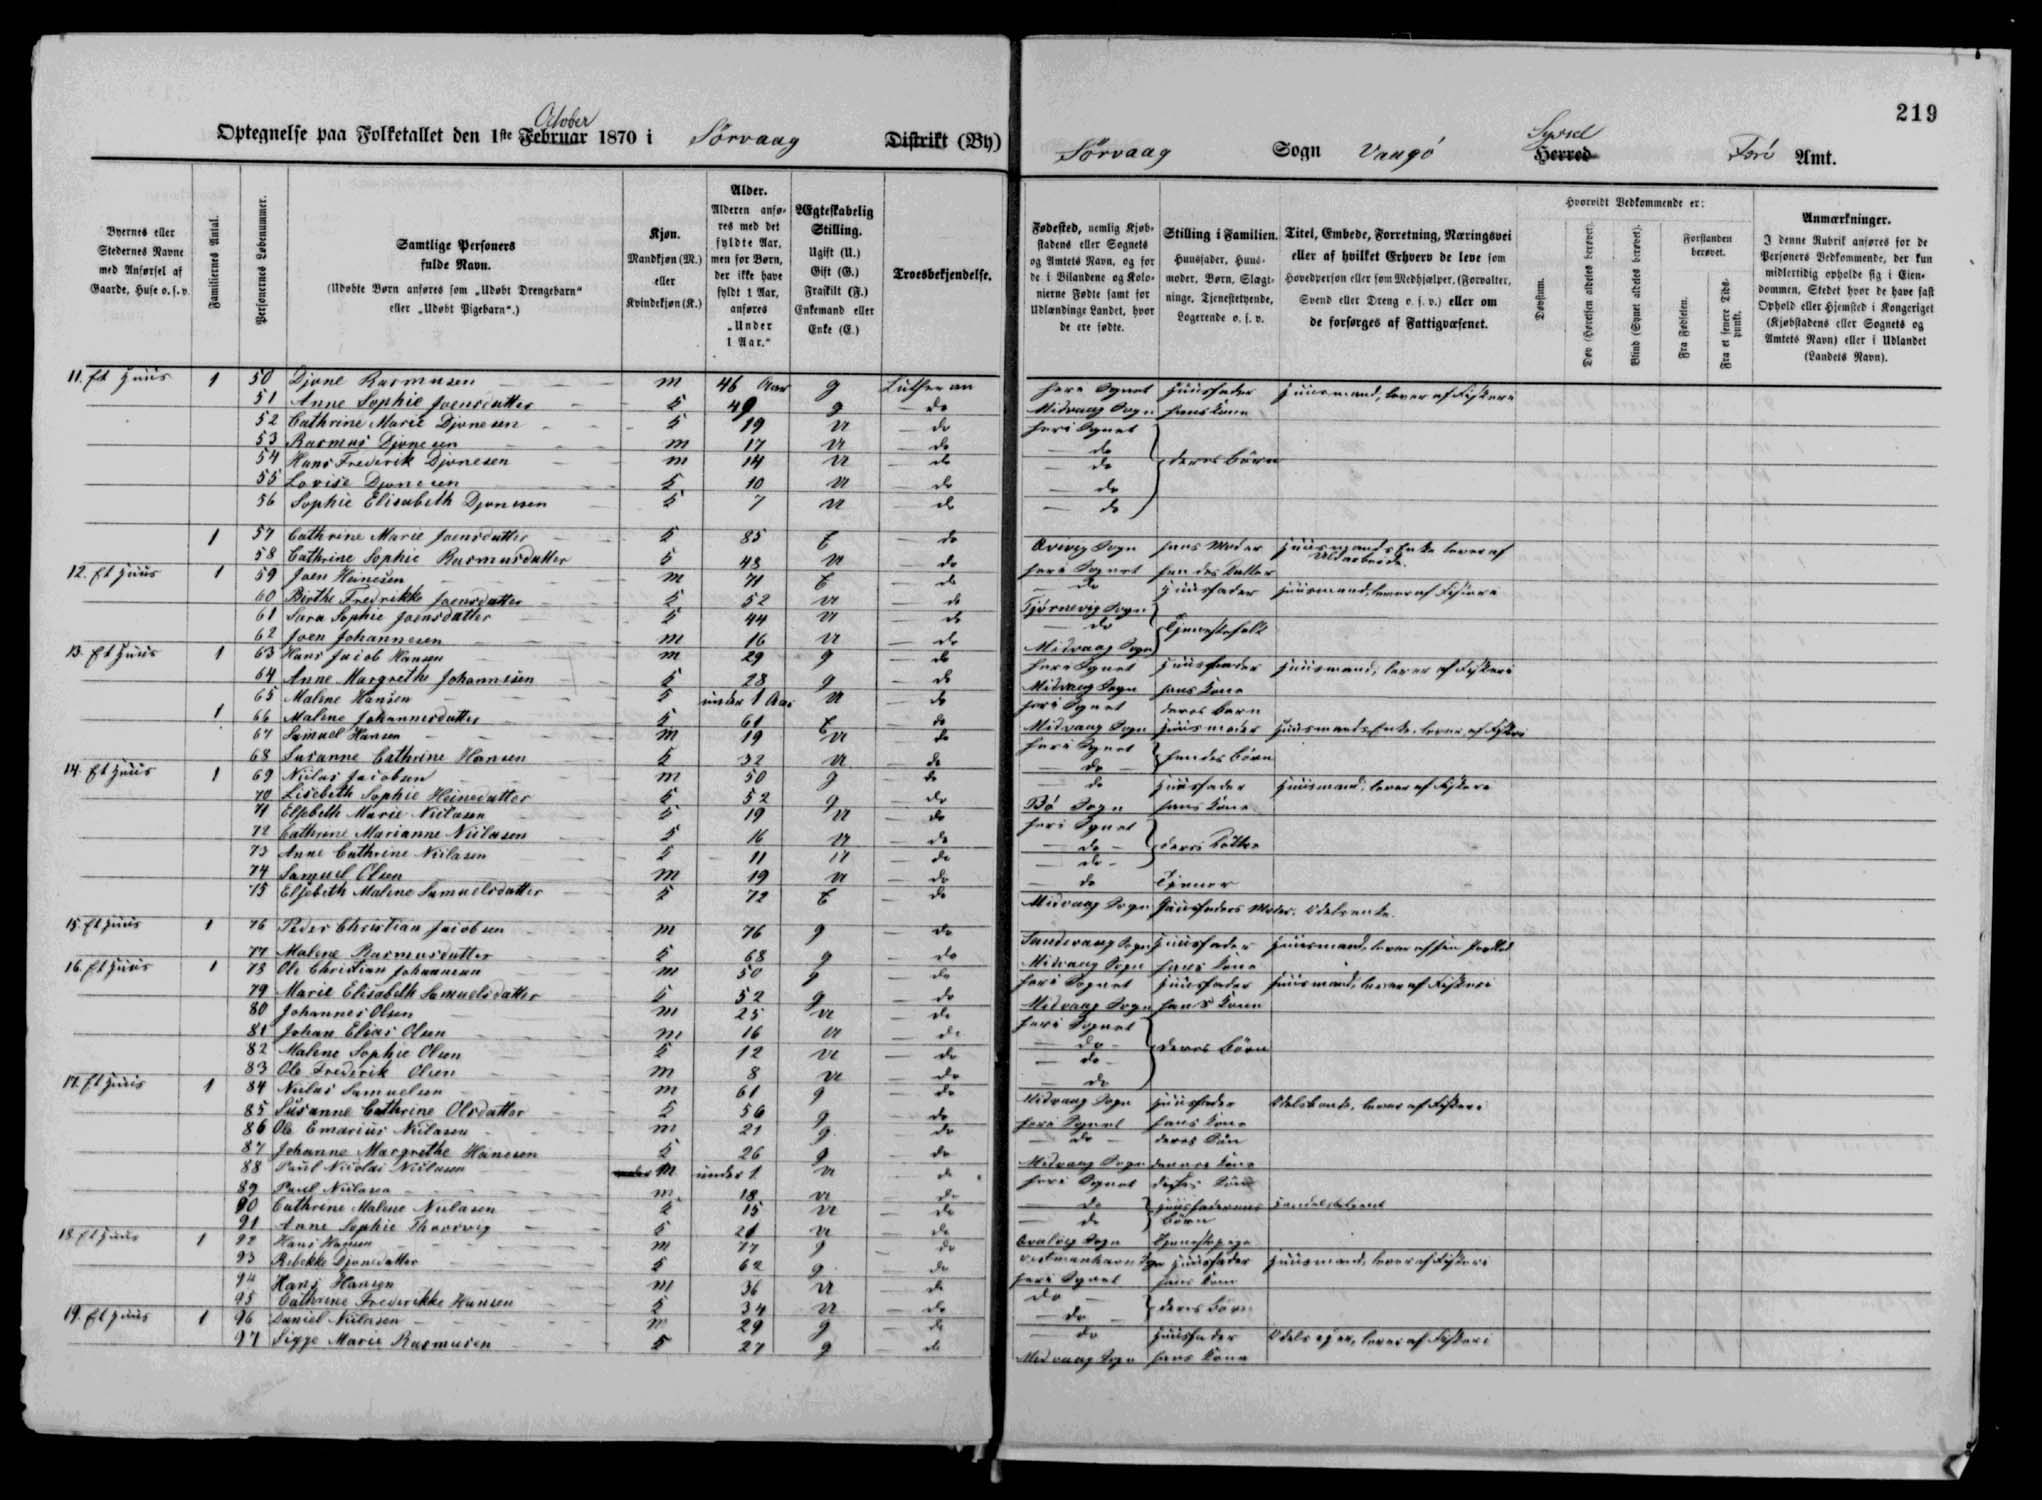 219
October
Optegnelse paa Folketallet den 1ste Februar 1870 i Sørvaag Distrikt (By)
Sørvaag Sogn Vaagö Herred Syssel Færö Amt.
Byernes eller Stedernes Navne med Anførsel af Gaarde, Huse o. s. v.
Familiernes Antal.
Personernes Løbenummer.
Samtlige Personers fulde Navn.
(Udøbte Børn anføres som „Udøbt Drengebarn“ eller „Udøbt Pigebarn“.)
Kjøn.
Mandkjøn (M.) eller Kvindekjøn (K.)
Alder.
Alderen anføres med det fyldte Aar, men for Børn, der ikke have fyldt 1 Aar, anføres „Under 1 Aar.“
Ægteskabelig Stilling.
Ugift (U.) Gift (G.) Fraskilt (F.) Enkemand eller Enke (E.)
Troesbekjendelse.
Fødested, nemlig Kjøbstadens eller Sognets og Amtets Navn, og for de i Bilandene og Kolonierne Fødte samt for Udlændinge Landet, hvor de ere fødte.
Stilling i Familien.
Huusfader, Huusmoder, Børn, Slægtninge, Tjenestetyende, Logerende o. s. v.
Titel, Embede, Forretning, Næringsvei eller af hvilket Erhverv de leve som Hovedperson eller som Medhjælper, (Forvalter, Svend eller Dreng o. s. v.) eller om de forsørges af Fattigvæsenet.
Hvorvidt Vedkommende er:
Døvstum.
Døv (Hørelsen aldeles berøvet).
Blind (Synet aldeles berøvet).
Forstanden berøvet.
Fra Fødselen.
Fra et senere Tidspunkt.
Anmærkninger.
I denne Rubrik anføres for de Personers Vedkommende, der kun midlertidig opholde sig i Eiendommen, Stedet hvor de have fast Ophold eller Hjemsted i Kongeriget (Kjøbstadens eller Sognets og Amtets Navn) eller i Udlandet (Landets Navn).
11. Et Huus 1 50 Djone Rasmusen m 46 Aar g Lutheran her i Sognet Huusfader Huusmand, lever af Fiskeri
51 Anne Sophie Joensdatter K 49 g do Midvaag Sogn hans Kone
52 Cathrine Marie Djonesen K 19 U do her i Sognet
53 Rasmus Djonesen m 17 U do do
54 Hans Frederik Djonesen m 14 U do do deres Börn
55 Lovise Djonesen K 10 U do do
56 Sophie Elisabeth Djonesen K 7 U do do
1 57 Cathrine Marie Joensdatter K 85 E do Qvivig Sogn hans Moder Huusmands Enke lever af Uldarbeide.
58 Cathrine Sophie Rasmusdatter K 48 U do her i Sognet hendes Datter
12. Et Huus 1 59 Joen Heinesen m 71 E do do Huusfader Huusmand, lever af Fiskeri
60 Birthe Fredrikke Joensdatter K 52 U do Tjørnevig Sogn
61 Sara Sophie Joensdatter K 44 U do do Tjenestefolk
62 Joen Johannesen m 16 U do Midvaag Sogn
13. Et Huus 1 63 Hans Jacob Hansen m 29 g do her i Sognet Huusfader Huusmand, lever af Fiskeri
64 Anne Margrethe Johannesen K 28 g do Midvaag Sogn hans Kone
65 Malene Hansen K under 1 Aar U do her i Sognet deres Barn
1 66 Malene Johannesdatter K 61 E do Midvaag Sogn Huusmoder Huusmands Enke, lever af Fiskeri
67 Samuel Hansen m 19 U do her i Sognet
68 Susanne Cathrine Hansen K 32 U do do hendes Börn
14. Et Huus 1 69 Niclas Jacobsen m 50 g do do Huusfader Huusmand, lever af Fiskeri
70 Lisebeth Sophie Heinesdatter K 52 g do Bö Sogn hans Kone
71 Elsebeth Marie Niclasen K 19 U do her i Sognet
72 Cathrine Marianne Niclasen K 16 U do do deres Döttre
73 Anne Cathrine Niclasen K 11 U do do
74 Samuel Olsen m 19 U do do Tjener
75 Elsebeth Malene Samuelsdatter K 72 E do Midvaag Sogn Huusfaders Moder. Odelsenke.
15. Et Huus 1 76 Peder Christian Jacobsen m 76 g do Sandevaag Sogn Huusfader Huusmand, lever af sin
77 Malene Rasmusdatter K 68 g do Midvaag Sogn hans Kone
16. Et Huus 1 78 Ole Christian Johannesen m 50 g do her i Sognet Huusfader Huusmand, lever af Fiskeri
79 Marie Elisabeth Samuelsdatter K 52 g do Midvaag Sogn hans Kone
80 Johannes Olsen m 25 U do her i Sognet
81 Johan Elias Olsen m 16 U do do
82 Malene Sophie Olsen K 12 U do do deres Börn
83 Ole Frederik Olsen m 8 U do do
17. Et Huus 1 84 Niclas Samuelsen m 61 g do Midvaag Sogn Huusfader Odelsbonde, lever af Fiskeri
85 Susanne Cathrine Olsdatter K 56 g do her i Sognet hans Kone
86 Ole Emarius Niclasen m 21 g do do deres Sön
87 Johanne Margrethe Hanesen K 26 g do Midvaag Sogn dennes Kone
88 Paul Nicolai Niclasen m under 1 U do her i Sognet Sön
89 Paul Niclasen m 18 U do do Huusfaderens
90 Cathrine Malene Niclasen K 15 U do do Börn
91 Anne Sophie Thorsvig K 21 U do Qvalvig Sogn Tjenestepige
18. Et Huus 1 92 Hans Hansen m 77 g do Vestmanhavn Sogn Huusfader Huusmand, lever af Fiskeri
93 Rebekke Djonesdatter K 62 g do her i Sognet hans Kone
94 Hans Hansen m 36 U do do
95 Cathrine Frederikke Hansen K 34 U do do deres Börn
19. Et Huus 1 96 Daniel Niclasen m 29 g do do Huusfader Odelsejer, lever af Fiskeri
97 Sigge Marie Rasmusen K 27 g do Midvaag Sogn hans Kone